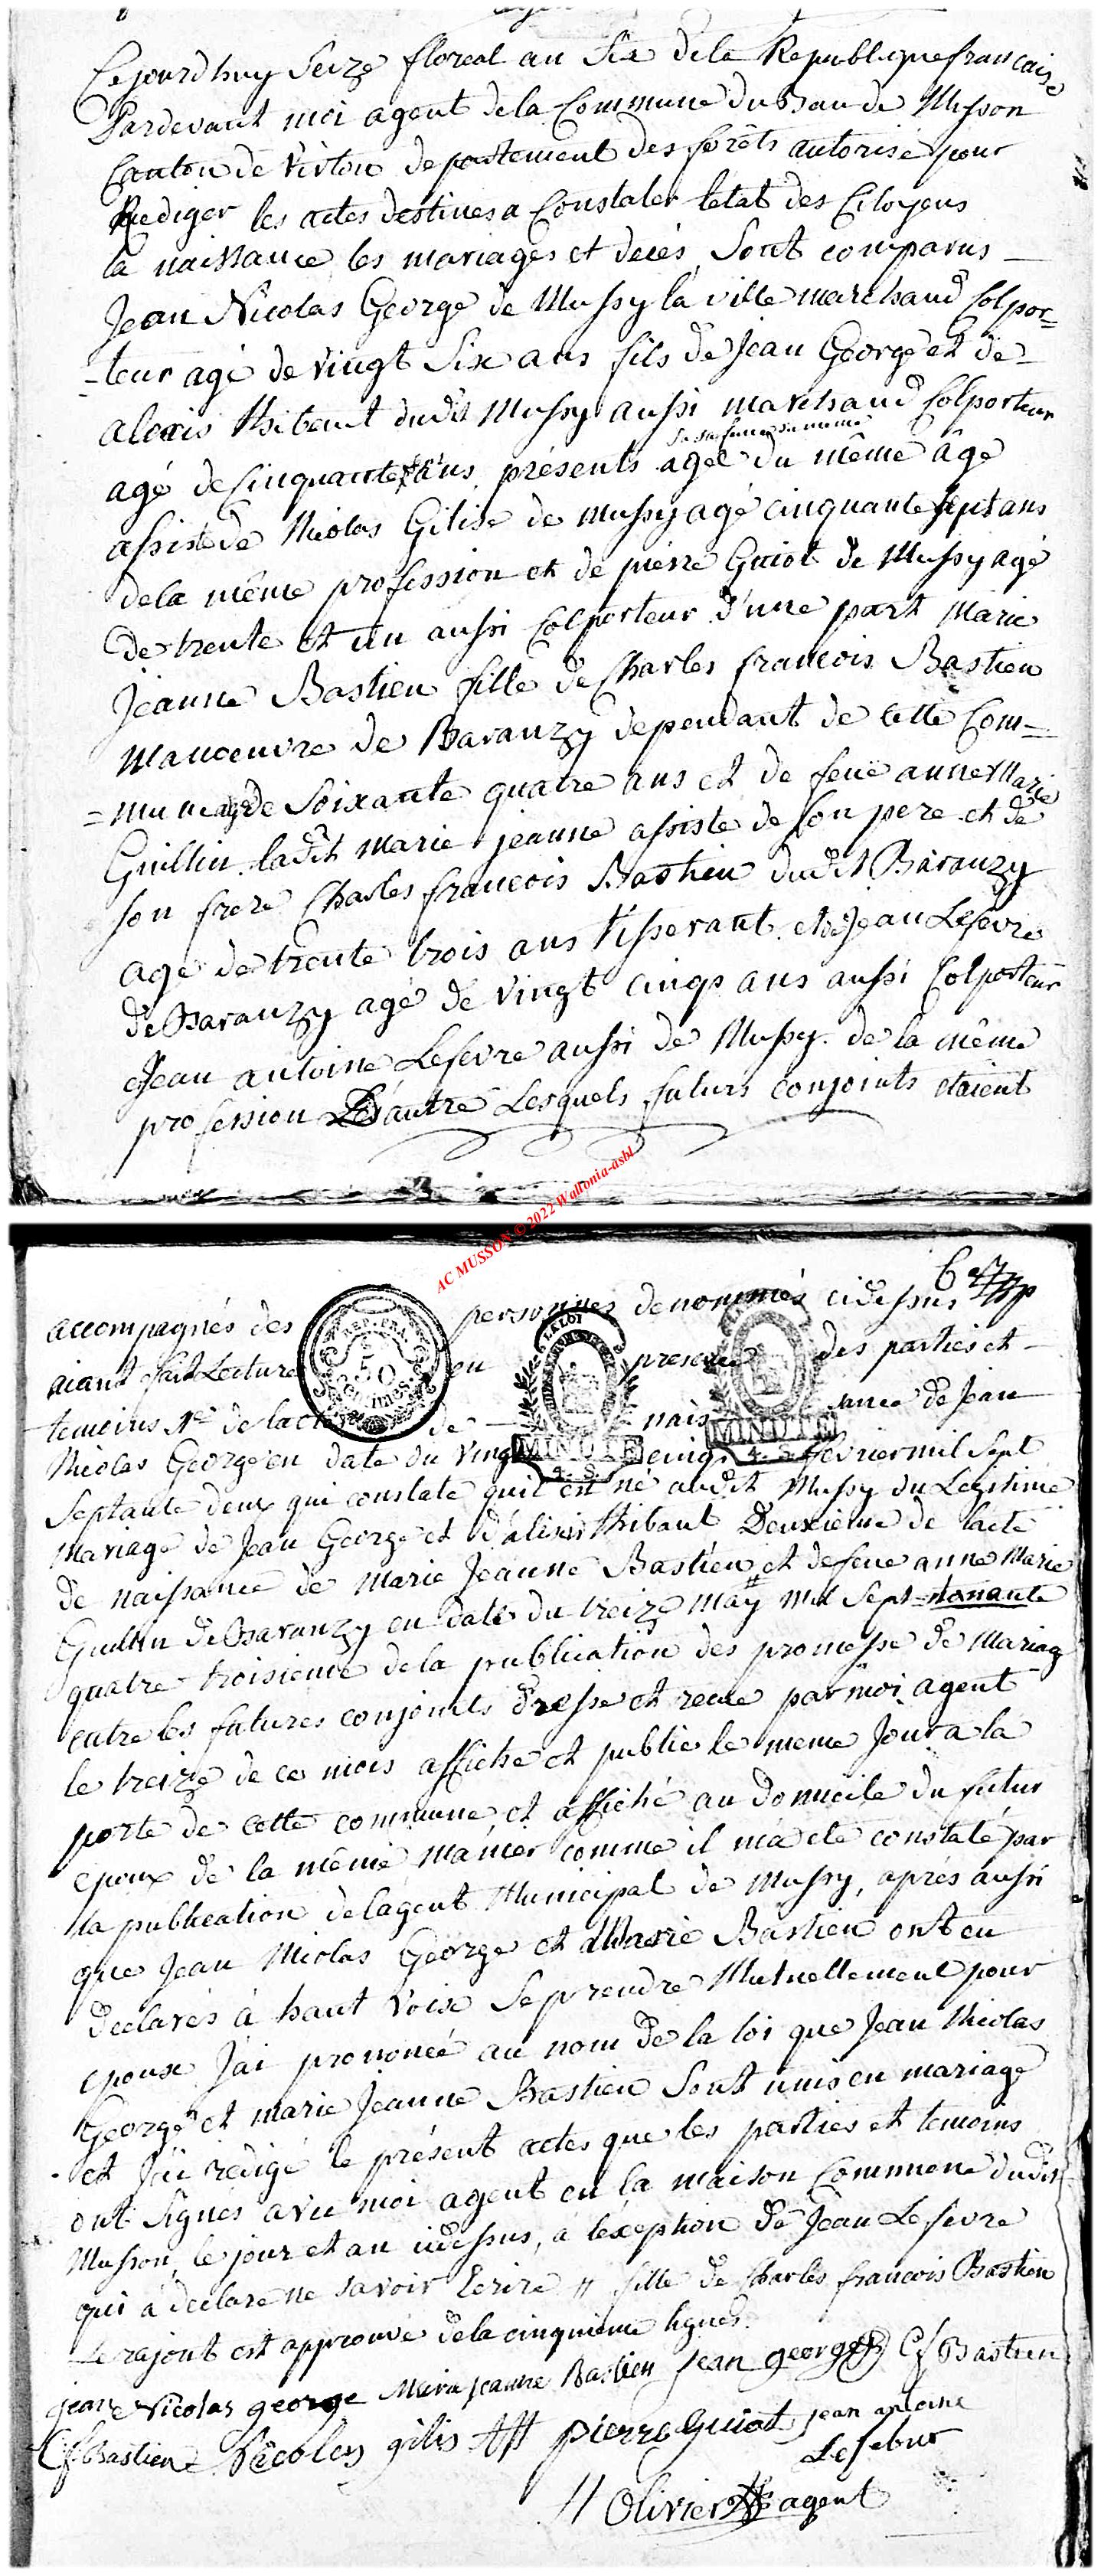 Cejourdhuy Seize floreal au Six dela Republique francaise
Pardevant moi agent dela Commune du Ban de Musson
Canton de Virton departement des forêts autorisé pour
Rediger les actes destines a Constater letat des Citoyens
la naissance les mariages et decés Sont comparus
Jean Nicolas George de Mussy la ville marchand Colpor=
=teur agé de vingt Six ans fils de Jean George et de
alexis thibaut dudit Mussy aussi marchand Colporteur
agé de Cinquante ans présents agée du même âge
assisté de Nicolas Gilise de mussy agé cinquante sept ans
dela même profession et de pierre Guiot de Mussy agé
de trente et un aussi Colporteur d'une part Marie
Jeanne Bastien fille de Charles francois Bastien
manoeuvre de Baranzy dependant de cette Com=
=mune agé de Soixante quatre ans et de feue anne Marie
Guillin ladit Marie jeanne assiste de son pere et de
son frere Charles francois Bastien dudit Baranzy
age de trente trois ans tisserant et Jean Lefevre
de Baranzy agé de vingt cinqs ans aussi Colporteur
Jean antoine Lefevre aussi de Mussy de la même
profession autre Lesquels futurs conjoints etaient
AC MUSSON © 2022 Wallonia-asbl
6
accompagnés des personnes denommés cidessus
REP. FRA.
50
LA LOI
aiant fait Lecture en presence des parties et
temoins 1° de lacte de naissance de Jean
MINUTE
MINUTE
Nicolas George en date du Vingt cinq fevrier mil Sept
Septante deux qui constate quil est né audit Mussy du Legitime
Mariage de Jean George et d'alixis thibaut Deuxieme de lacte
de naissance de Marie Jeanne Bastien et de feue anne Marie
Guillin de Baranzy en date du treize may mil Sept nonante
quatre troisieme dela publication des promesse de Mariag
entre les futures conjoints dresse et recue par moi agent
le treize de ce mois affiche et publie le meme Jour a la
porte de cette commune et affiché au Domicile du futur
epoux de la même manier comme il m'a ete constaté par
la publication delagent Municipal de Mussy, aprés aussi
que Jean Nicolas George et Marie Bastien ont eu
declarés à haut Voix Seprendre Mutuellement pour
epoux J'ai prononcé au nom de la loi que Jean Nicolas
George et marie Jeanne Bastien Sont unis en mariage
et J'ai redigé le présent actes que les parties et temoins
ont Signés avec moi agent en la maison Commune dudit
Musson, le jour et an cidessus, à léxeption de Jean Lefevre
qui a declare ne savoir Ecrire // fille de Charles francois Bastien
Le rajout est approuvé dela cinquieme lignes.
jean Nicolas george Maria jeanne Bastien jean george Cf Bastien
Cf Bastien Nicolas gilis pierre Guiot jean antoine
Lefebur
H Olivier agent